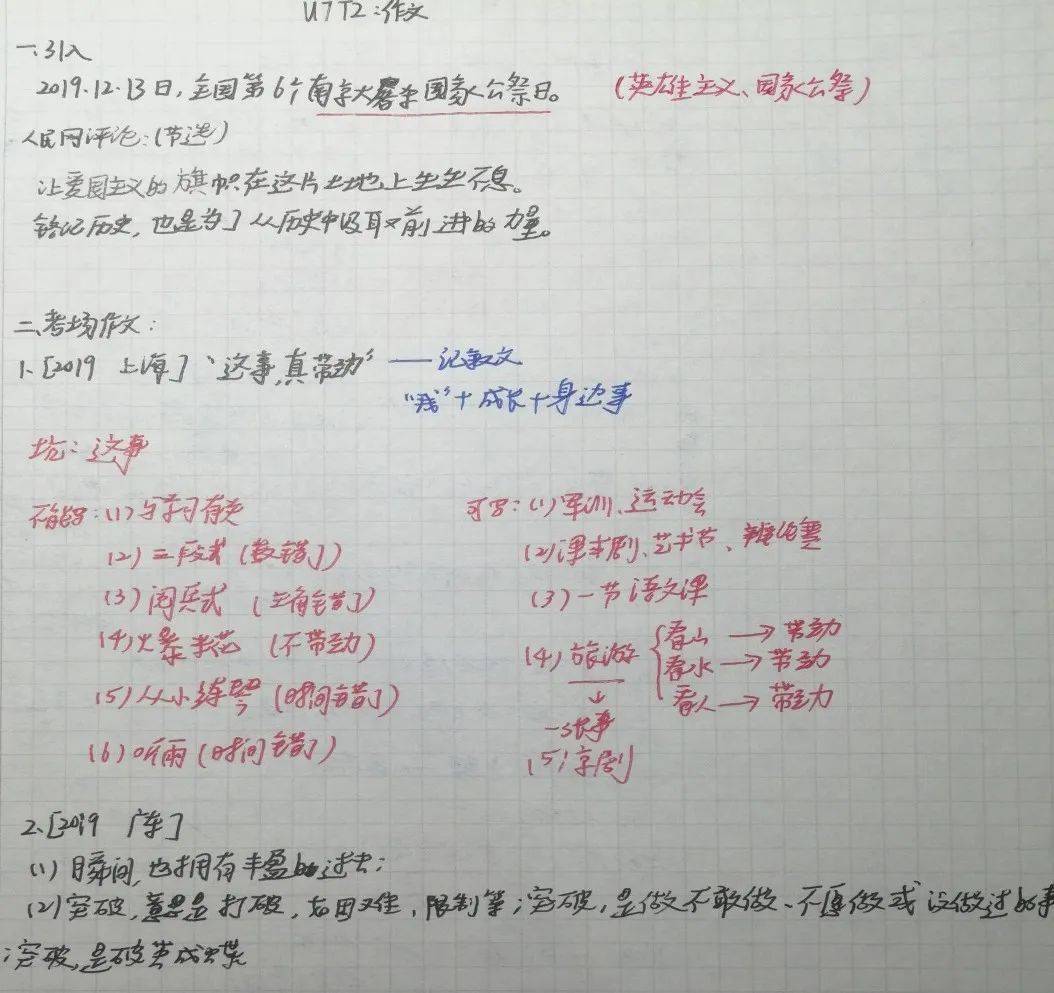 U7T2:作文
一、引入
2019.12.13日,全国第6个南京大屠杀国家公祭日。 (英雄主义、国家公祭)
人民网评论:(节选)
让爱国主义的旗帜在这片土地上生生不息。
铭记历史,也是为了从历史中汲取前进的力量。
二、考场作文:
1、[2019 上海]“这事,真带劲” ——记叙文
“我”+成长+身边事
坑:这事
不能写:(1)与学习有关
可写:(1)军训、运动会
(2)三段式(数错了)
(2)课本剧、艺术节、辩论赛
(3)阅兵式(主角错了)
(3)一节语文课
(4)火暴 (不带劲)
(4)旅游 看山→带劲
看水→带劲
看人→带劲
↓
一张事
(5)从小练琴(时间错了)
(5)京剧
(6)听雨(时间错了)
2、[2019 广东]
(1)瞬间,也拥有丰盈的过去;
(2)突破,意思是打破,如困难,限制等;突破,是做不敢做、不愿做或没做过的事
;突破,是破茧成蝶